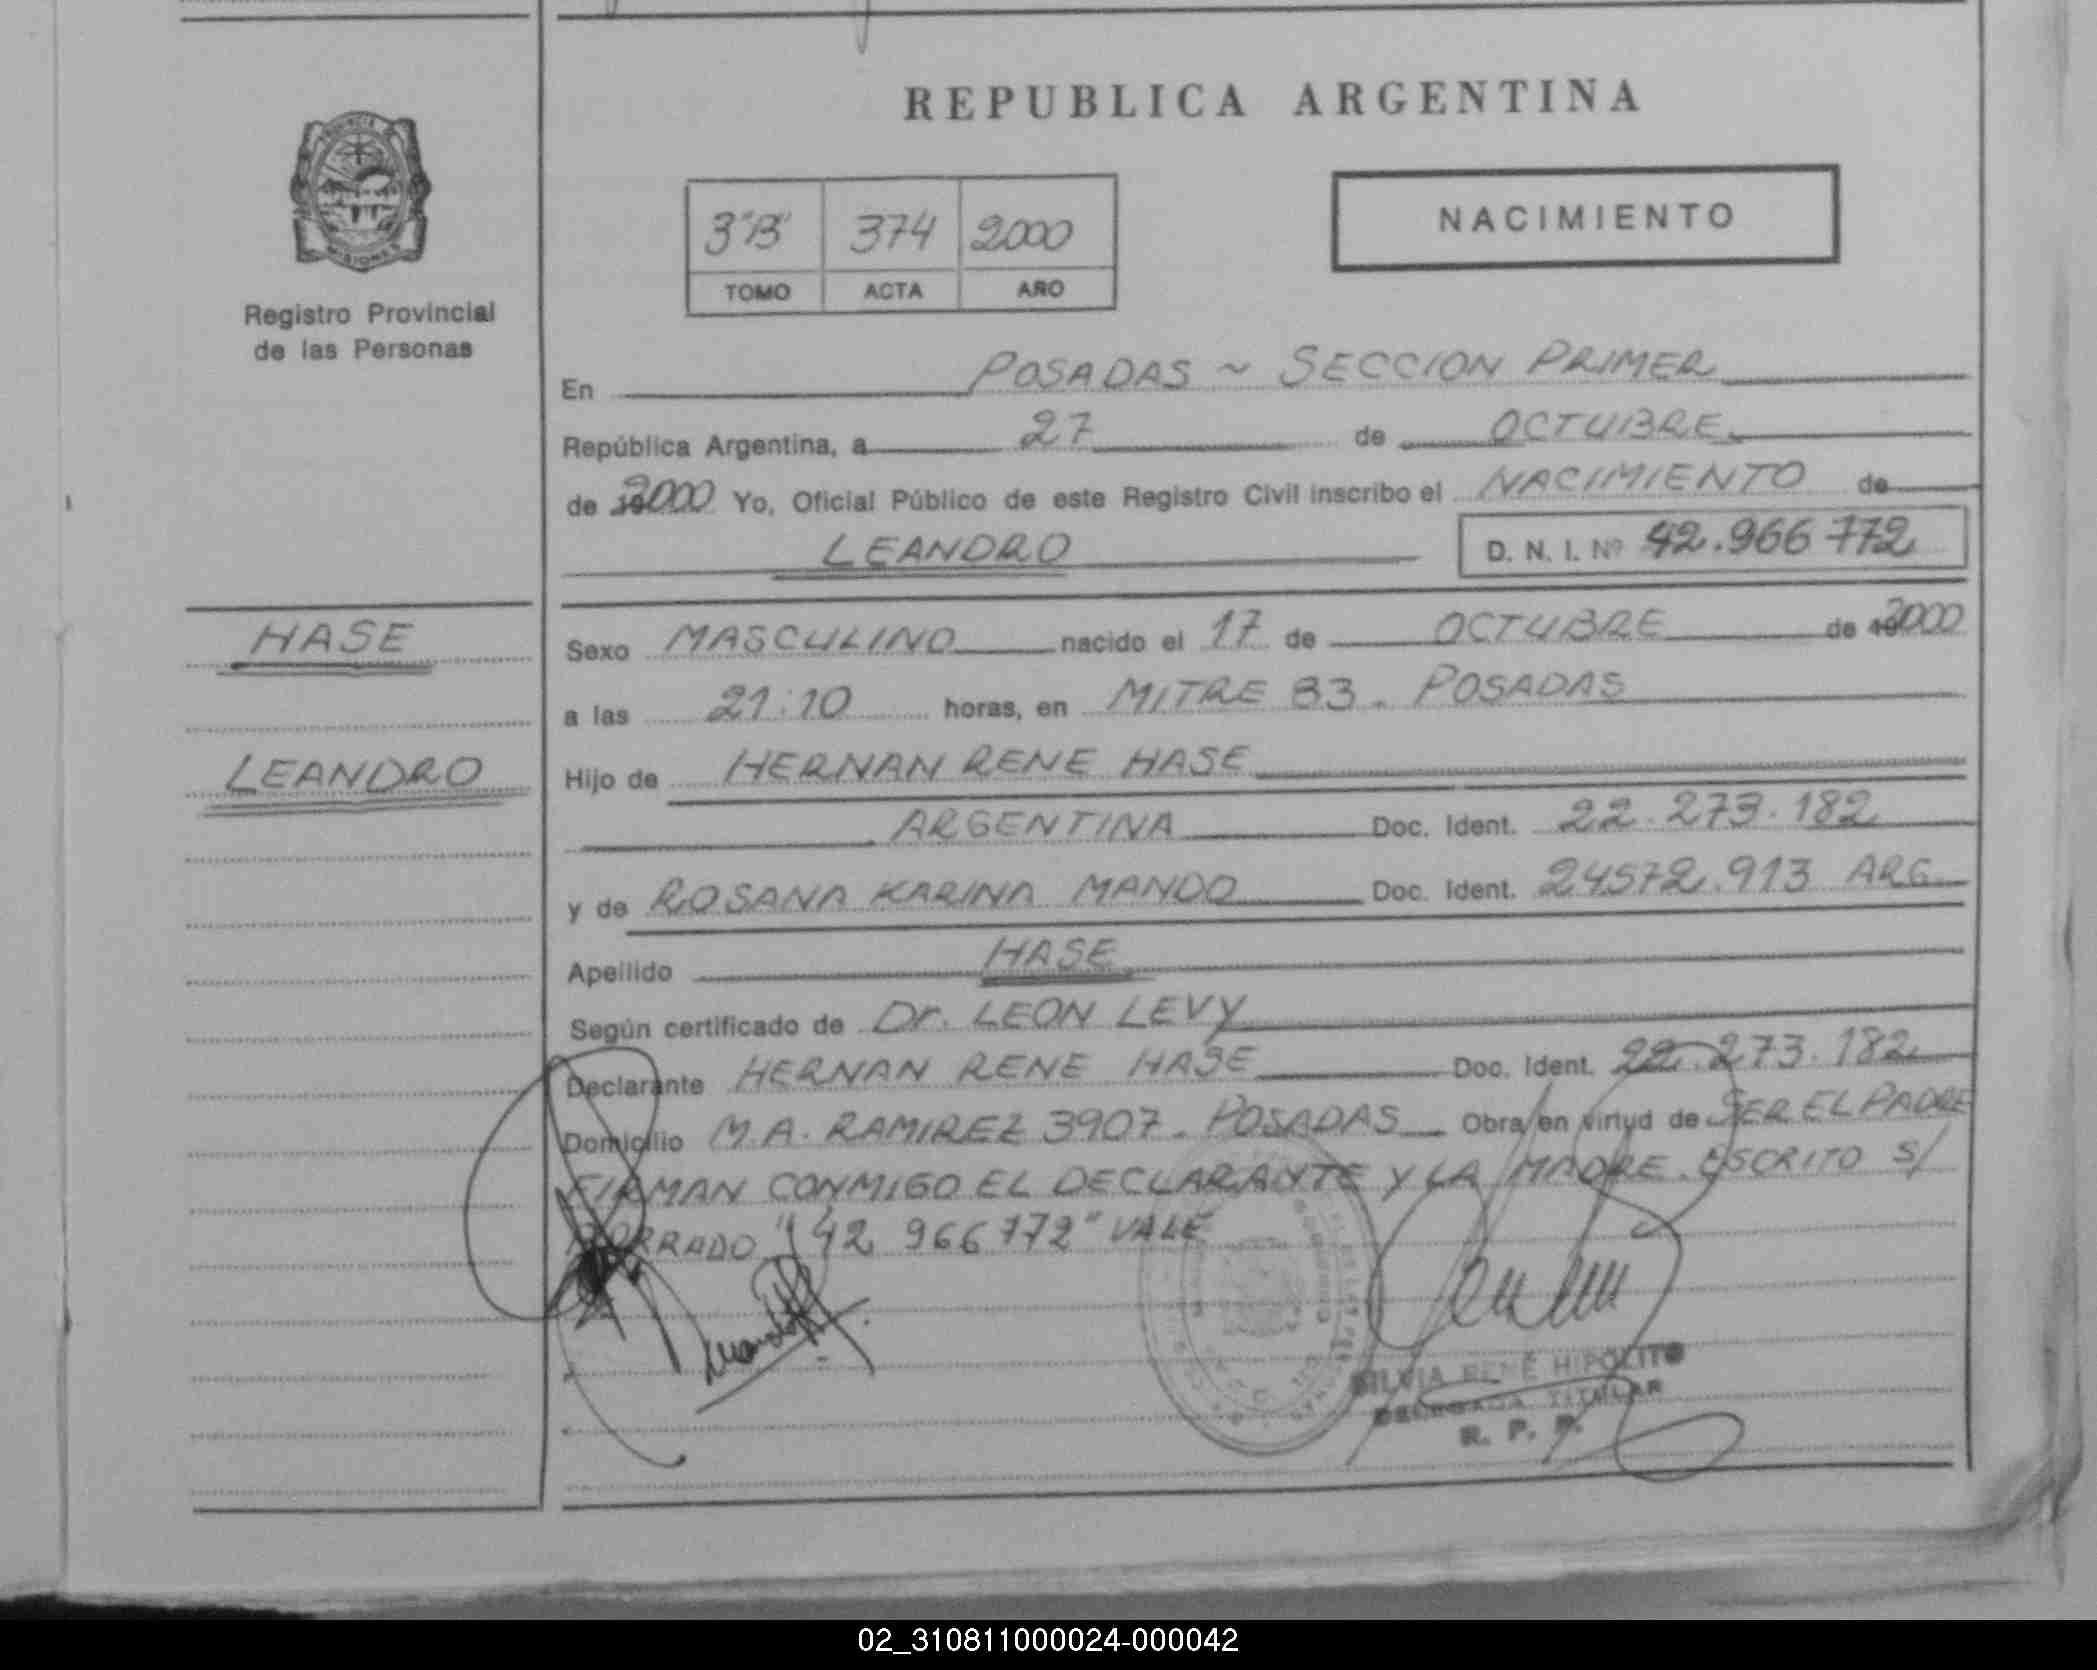 REPUBLICA ARGENTINA
PROVINCIA
MISIONES
3"B" 374 2000
TOMO ACTA AÑO
NACIMIENTO
Registro Provincial
de las Personas
En POSADAS ~ SECCION PRIMER
República Argentina, a 27 de OCTUBRE
de 2000 Yo, Oficial Público de este Registro Civil inscribo el NACIMIENTO de
LEANDRO D. N. I. Nº 42.966 772
HASE
LEANDRO
Sexo MASCULINO nacido el 17 de OCTUBRE de 2000
a las 21:10 horas, en MITRE 83. POSADAS
Hijo de HERNAN RENE HASE
ARGENTINA Doc. Ident. 22.273.182
y de ROSANA KARINA MANDO Doc. Ident. 24572.913 ARG
Apellido HASE
Según certificado de Dr. LEON LEVY
Declarante HERNAN RENE HASE Doc. Ident. 22.273.182
Domicilio M.A. RAMIREZ 3907. POSADAS Obra en virtud de SER EL PADRE
FIRMAN CONMIGO EL DECLARANTE Y LA MADRE. ESCRITO S/
BORRADO "42 966 772" VALE
SILVIA RENÉ HIPOLITO
DELEGADA TITULAR
R. P. P.
02_310811000024-000042